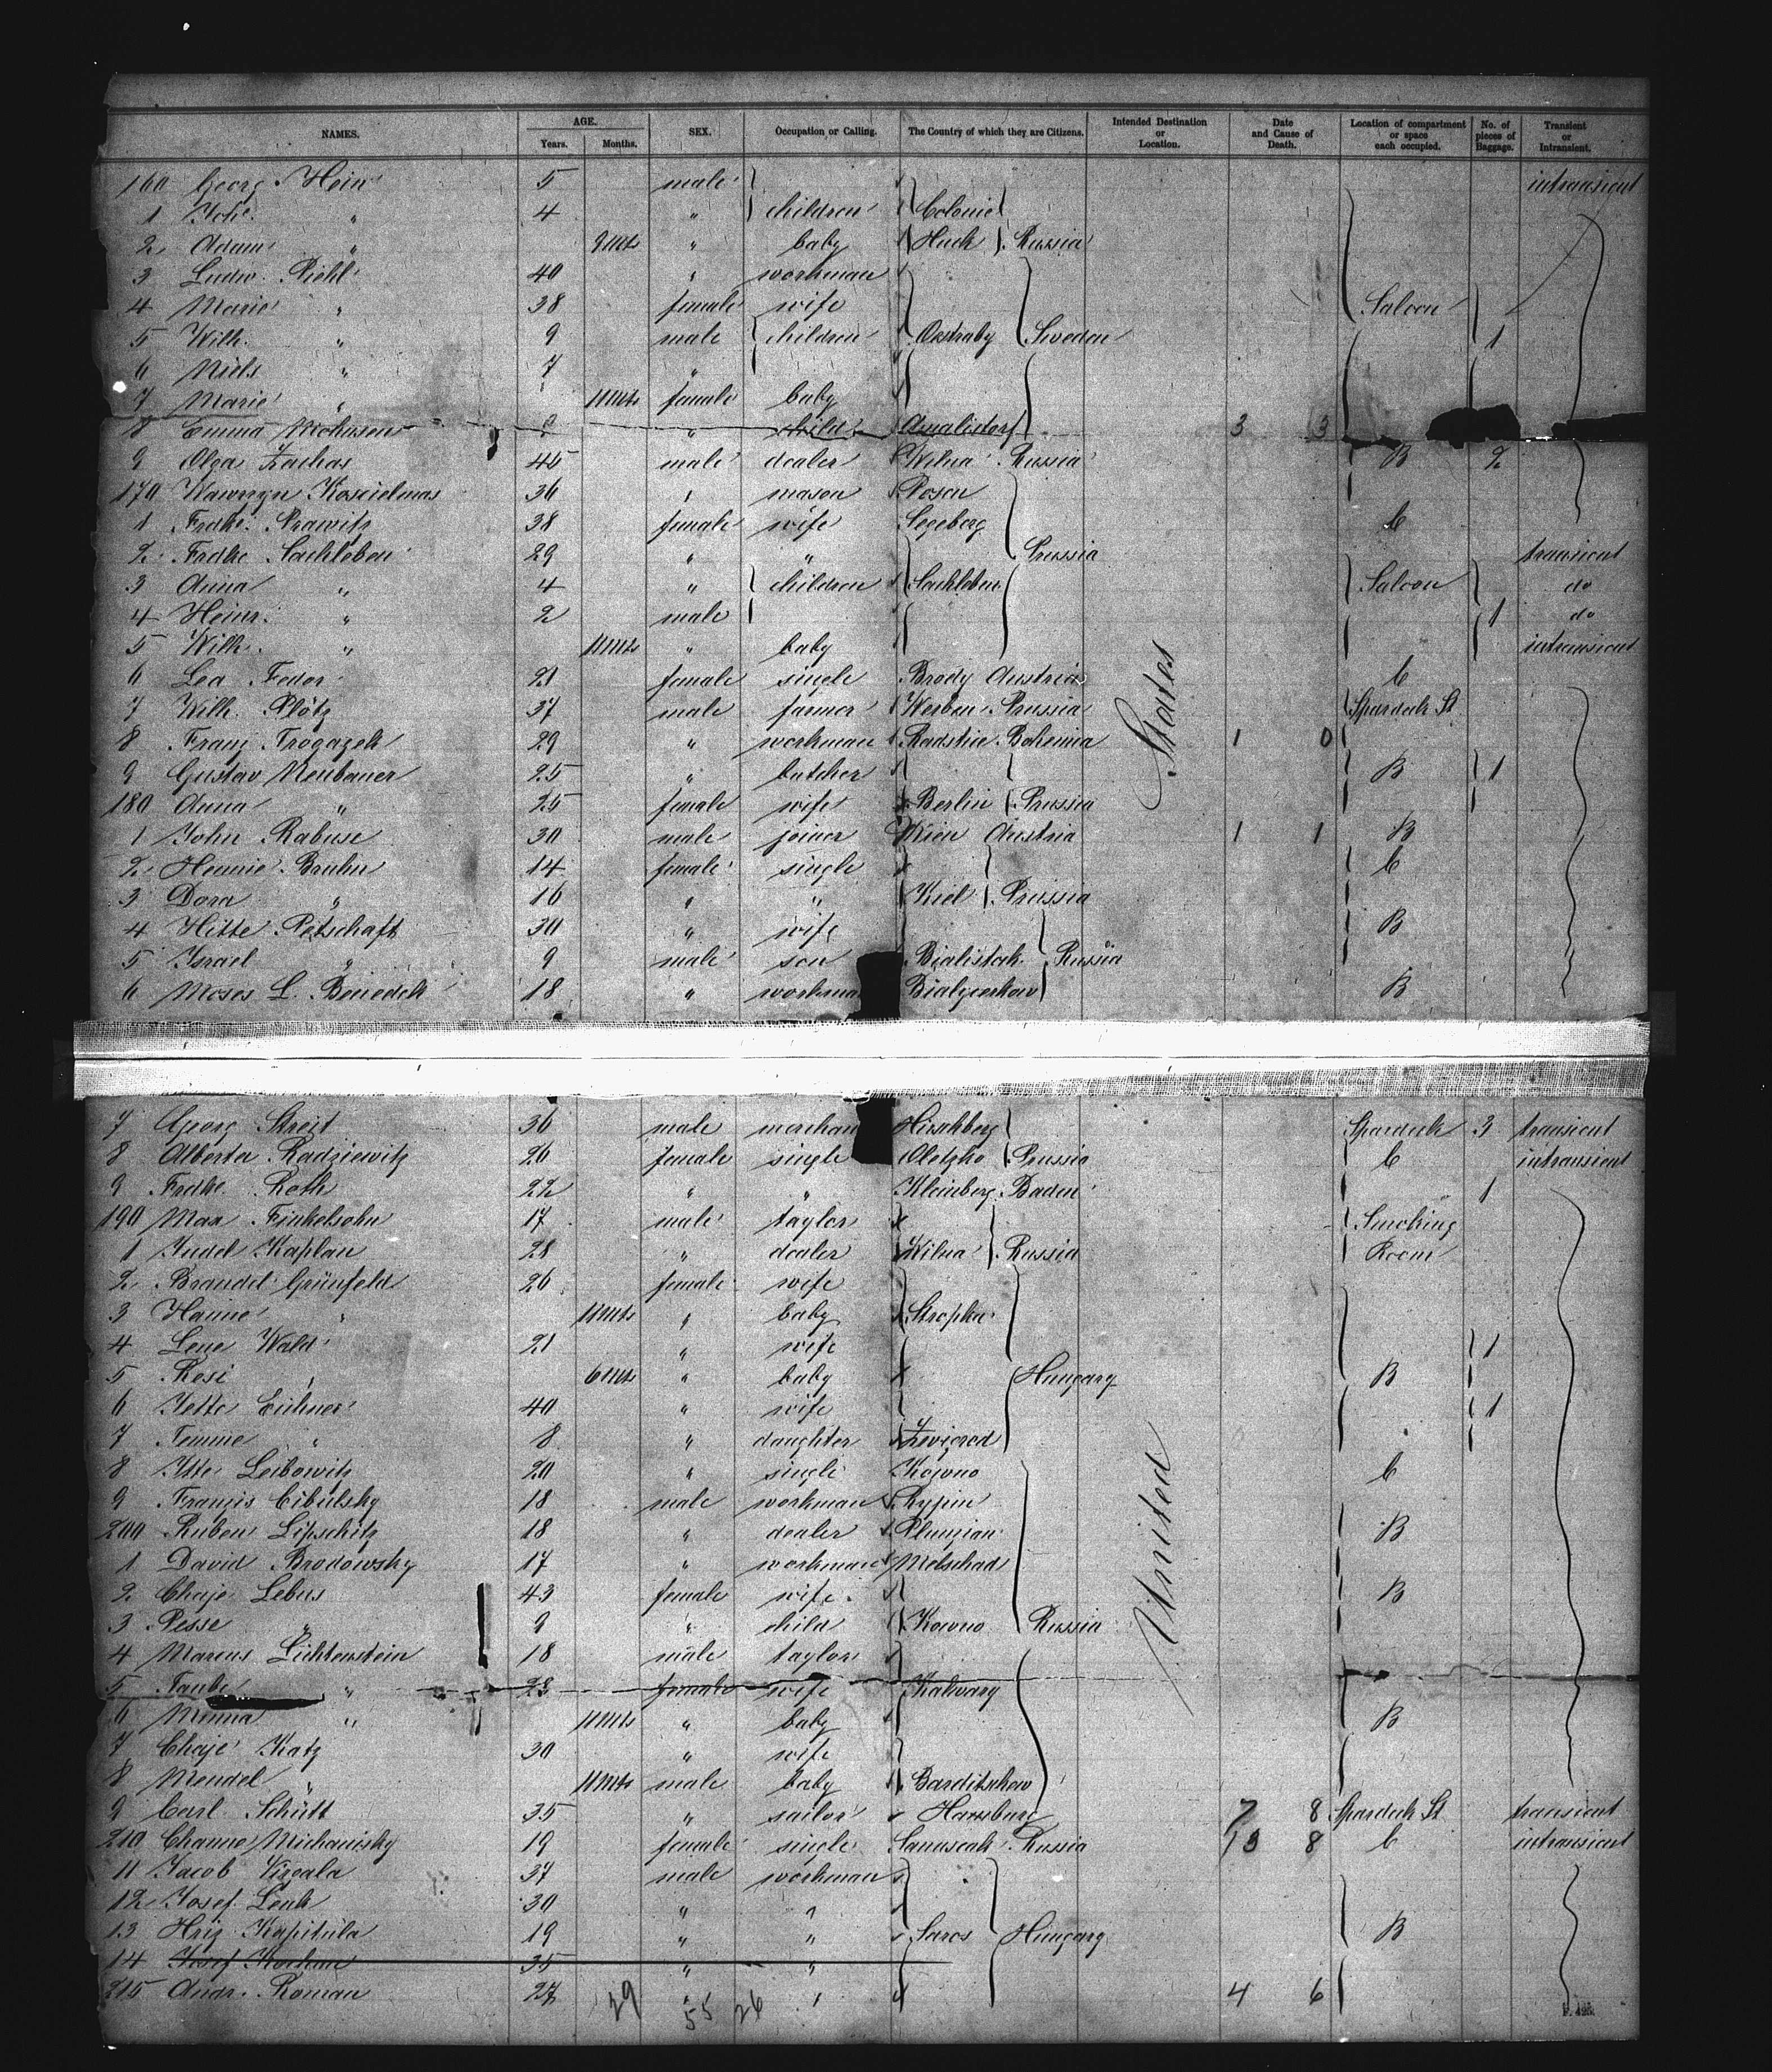 NAMES. AGE. Years. Months. SEX. Occupation or Calling. The Country of which they are Citizens. Intended Destination or Location. Date and Cause of Death. Location of compartment or space each occupied. No. of pieces of Baggage. Transient or Intransient.
160 Georg Hein 5 male intransient
1 Joh. " 4 " children Colonie
2 Adam " 9 Mts " baby Huck Russia
3 Ludw. Piehl 40 " workman
4 Marie " 38 female wife Saloon
5 Wilh. " 9 male children Ostraby Sweden 1
6 Niels " 7 "
7 Marie " 11 Mts female baby
8 Emma " child Amalistorf 3 3
9 Olga Zachas 45 male dealer Wilna Russia B 2
170 Wawrzyn Koscielmas 36 " mason Posen
1 Fredke. Prawitz 38 female wife Segeberg C
2 Fredke Sachleben 29 " " Prussia transient
3 Anna " 4 " children Sachleben Saloon do
4 Heinr. " 2 male 1 do
5 Wilh. " 11 Mts " baby intransient
6 Lea Fedor 21 female single Brody Austria C
7 Wilh. Plötz 37 male farmer Werben Prussia Spardeck St
8 Franz Trogazek 29 " workman Radstie Bohemia 1 0
9 Gustav Neubauer 25 " butcher B 1
180 Anna " 25 female wife Berlin Prussia
1 John Rabuse 30 male joiner Wien Austria 1 1 B
2 Hennie Bruhn 14 female single C
3 Dora " 16 " " Kiel Prussia
4 Hitte Petschaft 30 " wife B
5 Israel " 9 male son Bialistok Russia
6 Moses L. Benedek 18 " workman Bialycerkow B
States
7 Georg Streit 36 male merchan Hirschberg Spardeck 3 transient
8 Alberta Radziewitz 26 female single Oletzko Prussia C intransient
9 Fredke. Roth 22 " " Kleinberg Baden 1
190 Max Finkelsohn 17 male taylor Smoking
1 Judel Kaplan 28 " dealer Wilna Russia Room
2 Brandel Grünfeld 26 female wife
3 Hanne " 11 Mts " baby Stropka
4 Lene Wald 21 " wife 1
5 Resi " 6 Mts " baby Hungary B
6 Jette Eichner 40 " wife 1
7 Temme " 8 " daughter
8 Itte Leibowitz 20 " single Kowno C
9 Franzis Cibulsky 18 male workman Rypin
200 Ruben Lipschitz 18 " dealer Plunzian B
1 David Brodowsky 17 " workman Metschad
2 Chaje Lebus 43 female wife B
3 Pesse " 9 " child Kowno Russia
4 Marcus Lichtenstein 18 male taylor
5 Taube " 23 female wife Kalwary
6 Minna " 11 Mts " baby B
7 Chaje Katz 30 " wife
8 Mendel " 11 Mts male baby Barditschew
9 Carl Schütt 35 " sailor Hamburg 7 8 Spardeck St transient
210 Channe Michanisky 19 female single Russia 13 8 C intransient
11 Jacob Virgala 37 male workman
12 Josef Lenk 30 " "
13 Hriz Kapitula 19 " " Saros Hungary B
14 Josef 35 " "
215 Andr. Roman 27 " " 4 6
29 55 26
United